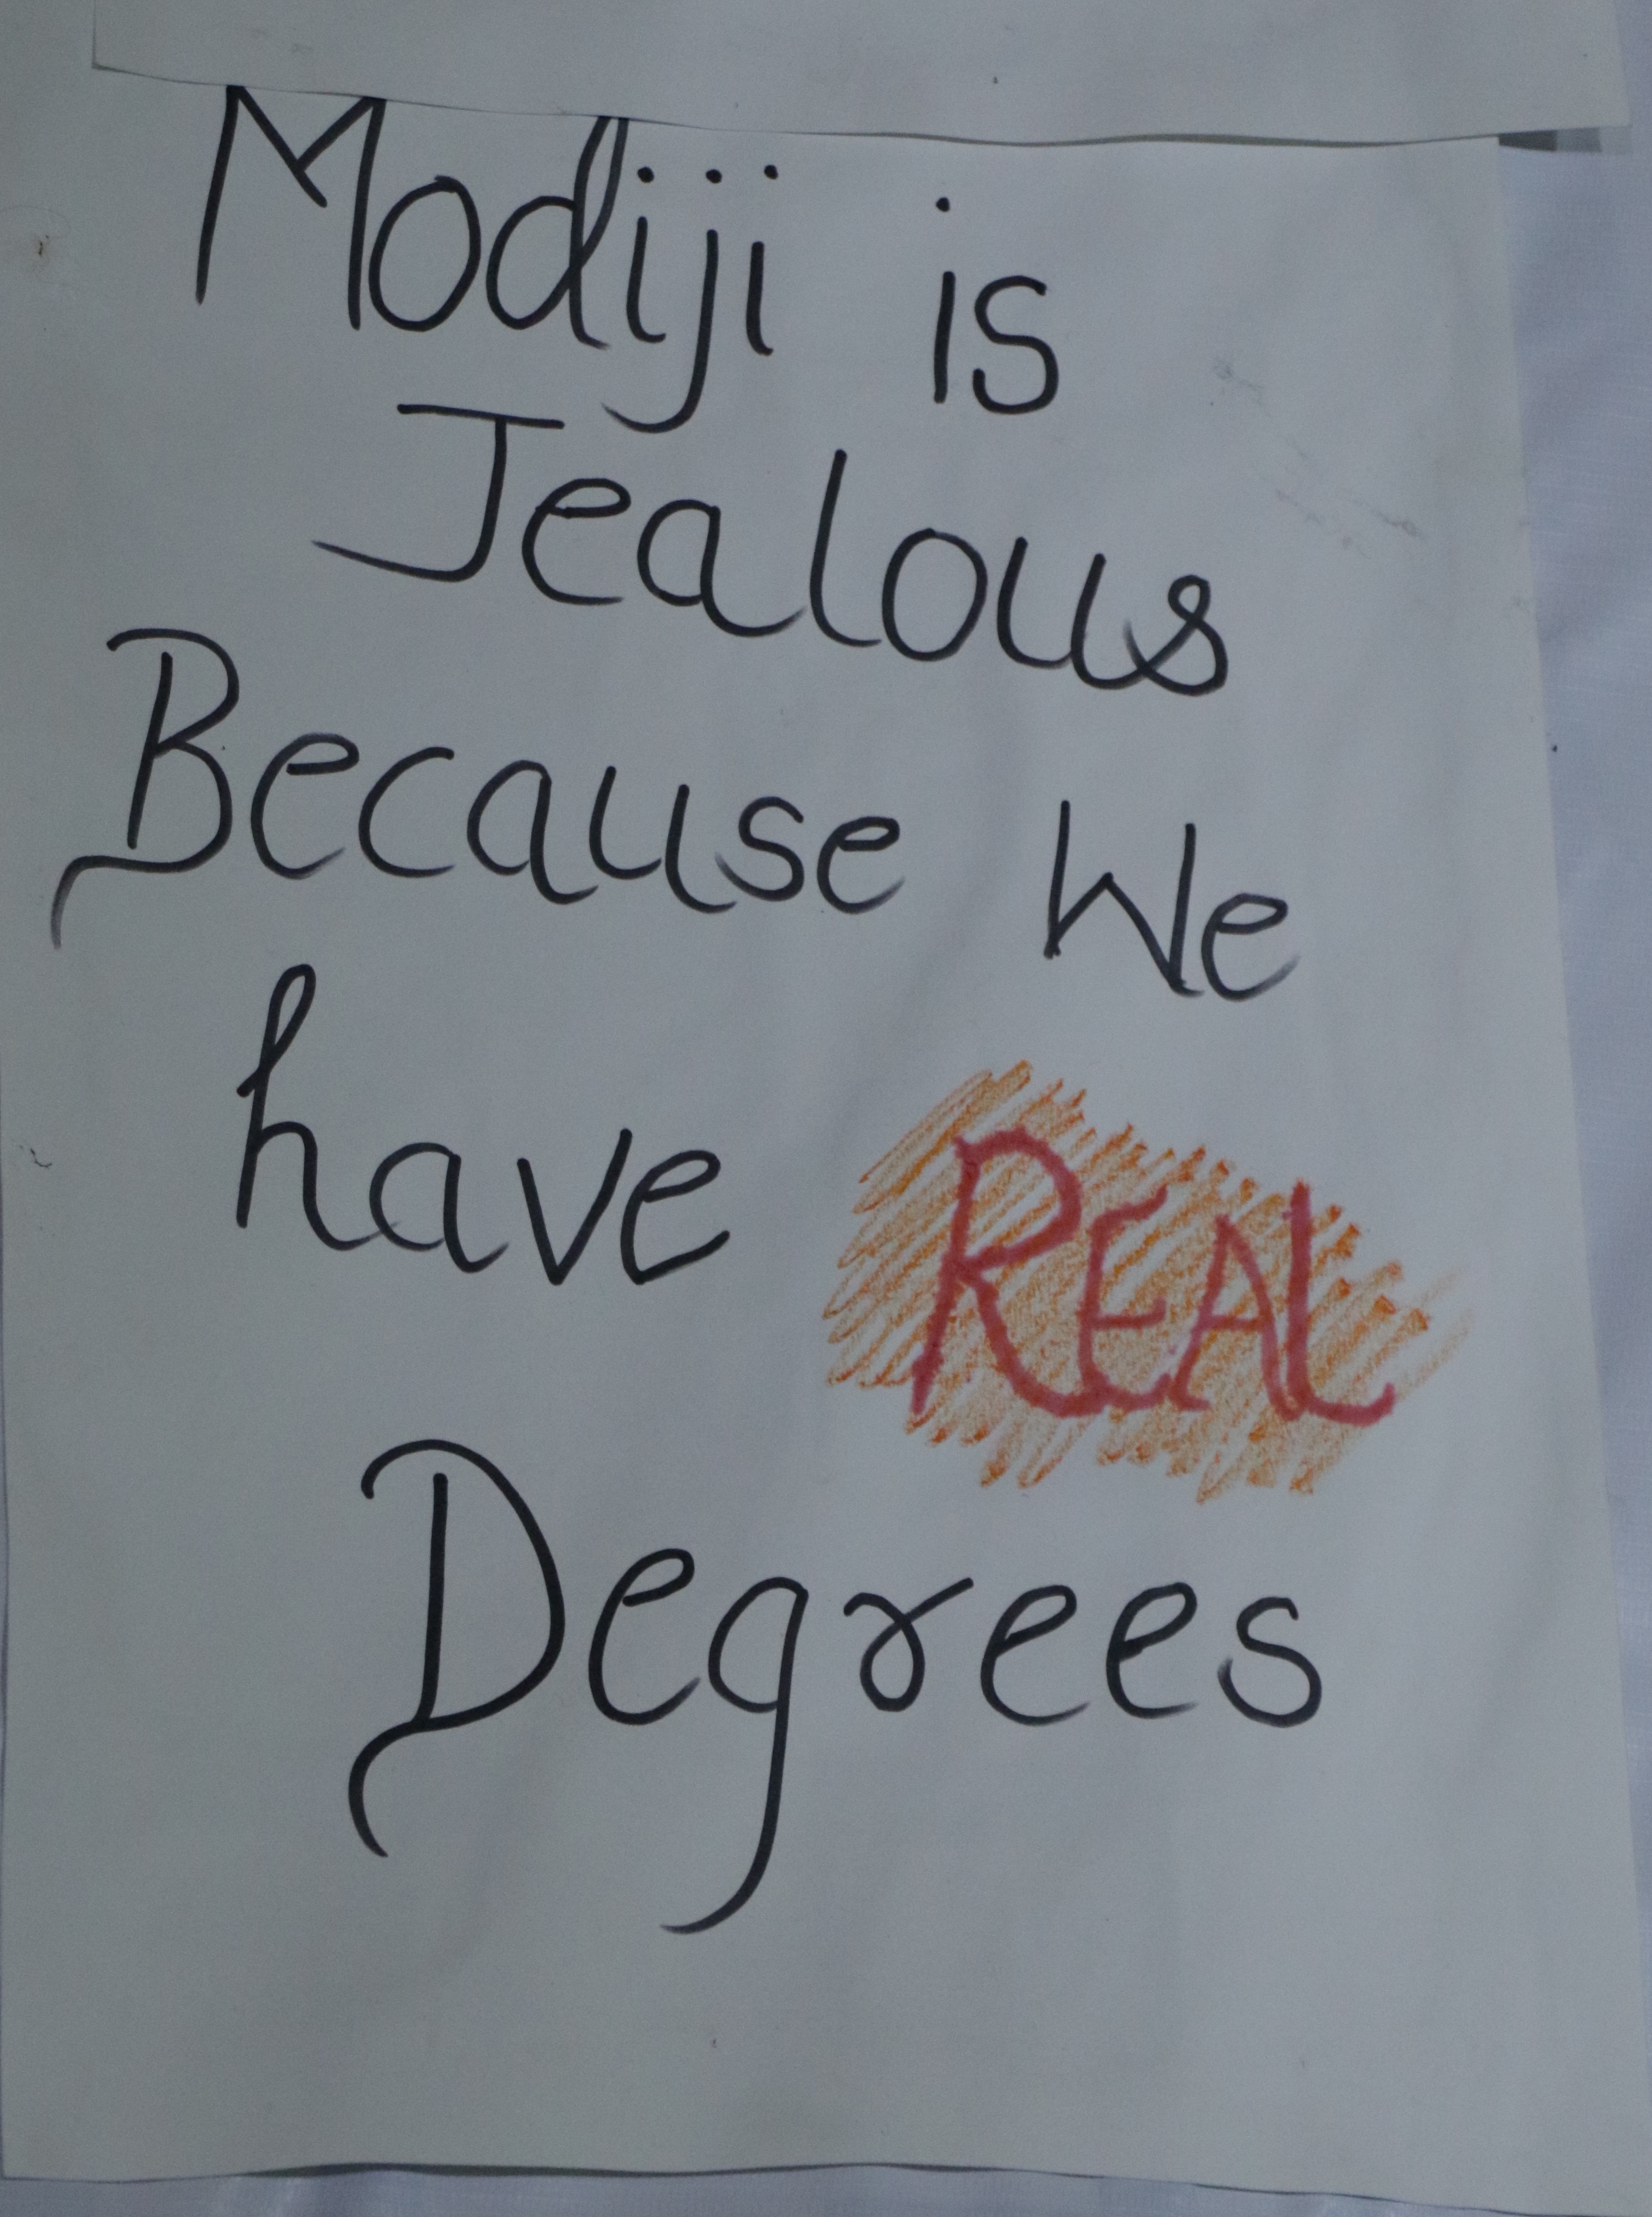 Modiji is
Jealous
Because We
have REAL
Degrees